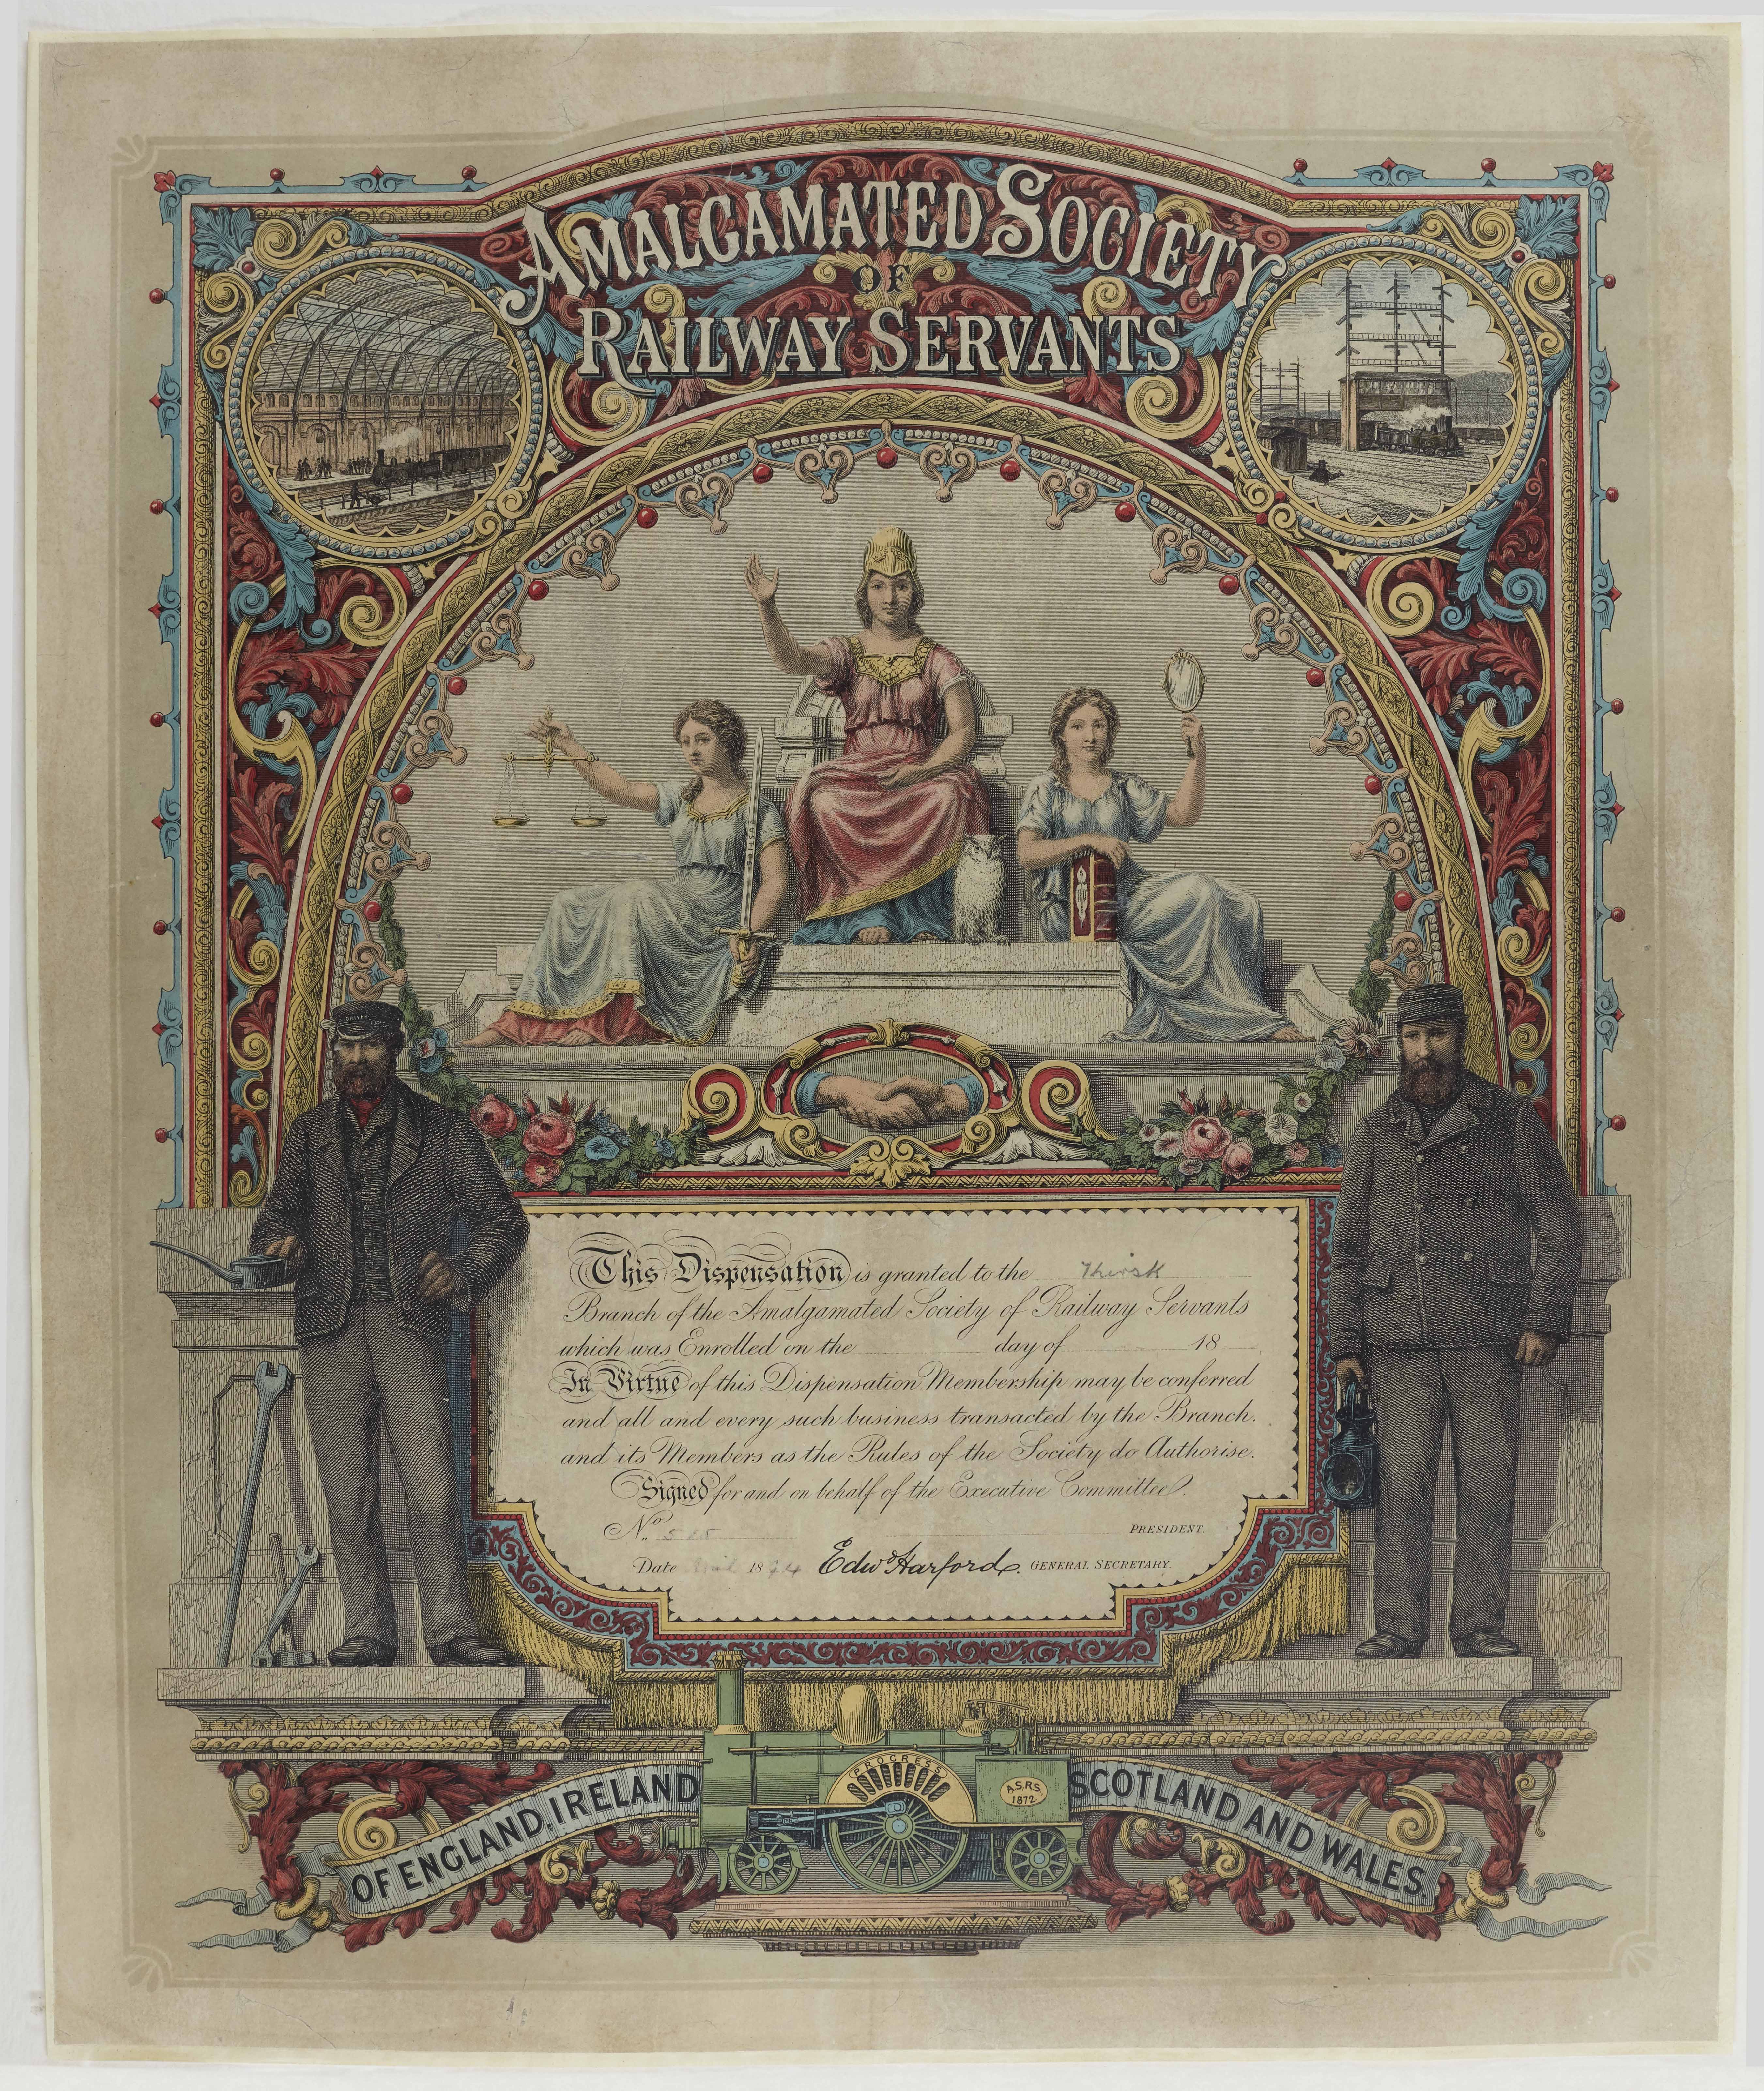 AMALGAMATED SOCIETY
OF
RAILWAY SERVANTS
TRUTH
JUSTICE
This Dispensation is granted to the Thirsk
Branch of the Amalgamated Society of Railway Servants
which was Enrolled on the day of 18
In Virtue of this Dispensation Membership may be conferred
and all and every such business transacted by the Branch.
and its Members as the Rules of the Society do Authorise.
Signed for and on behalf of the Executive Committee.
No. 515
PRESIDENT.
Date April 1894 Edwd. Harford. GENERAL SECRETARY.
PROGRESS
A.S.R.S
1872
OF ENGLAND, IRELAND
SCOTLAND AND WALES.